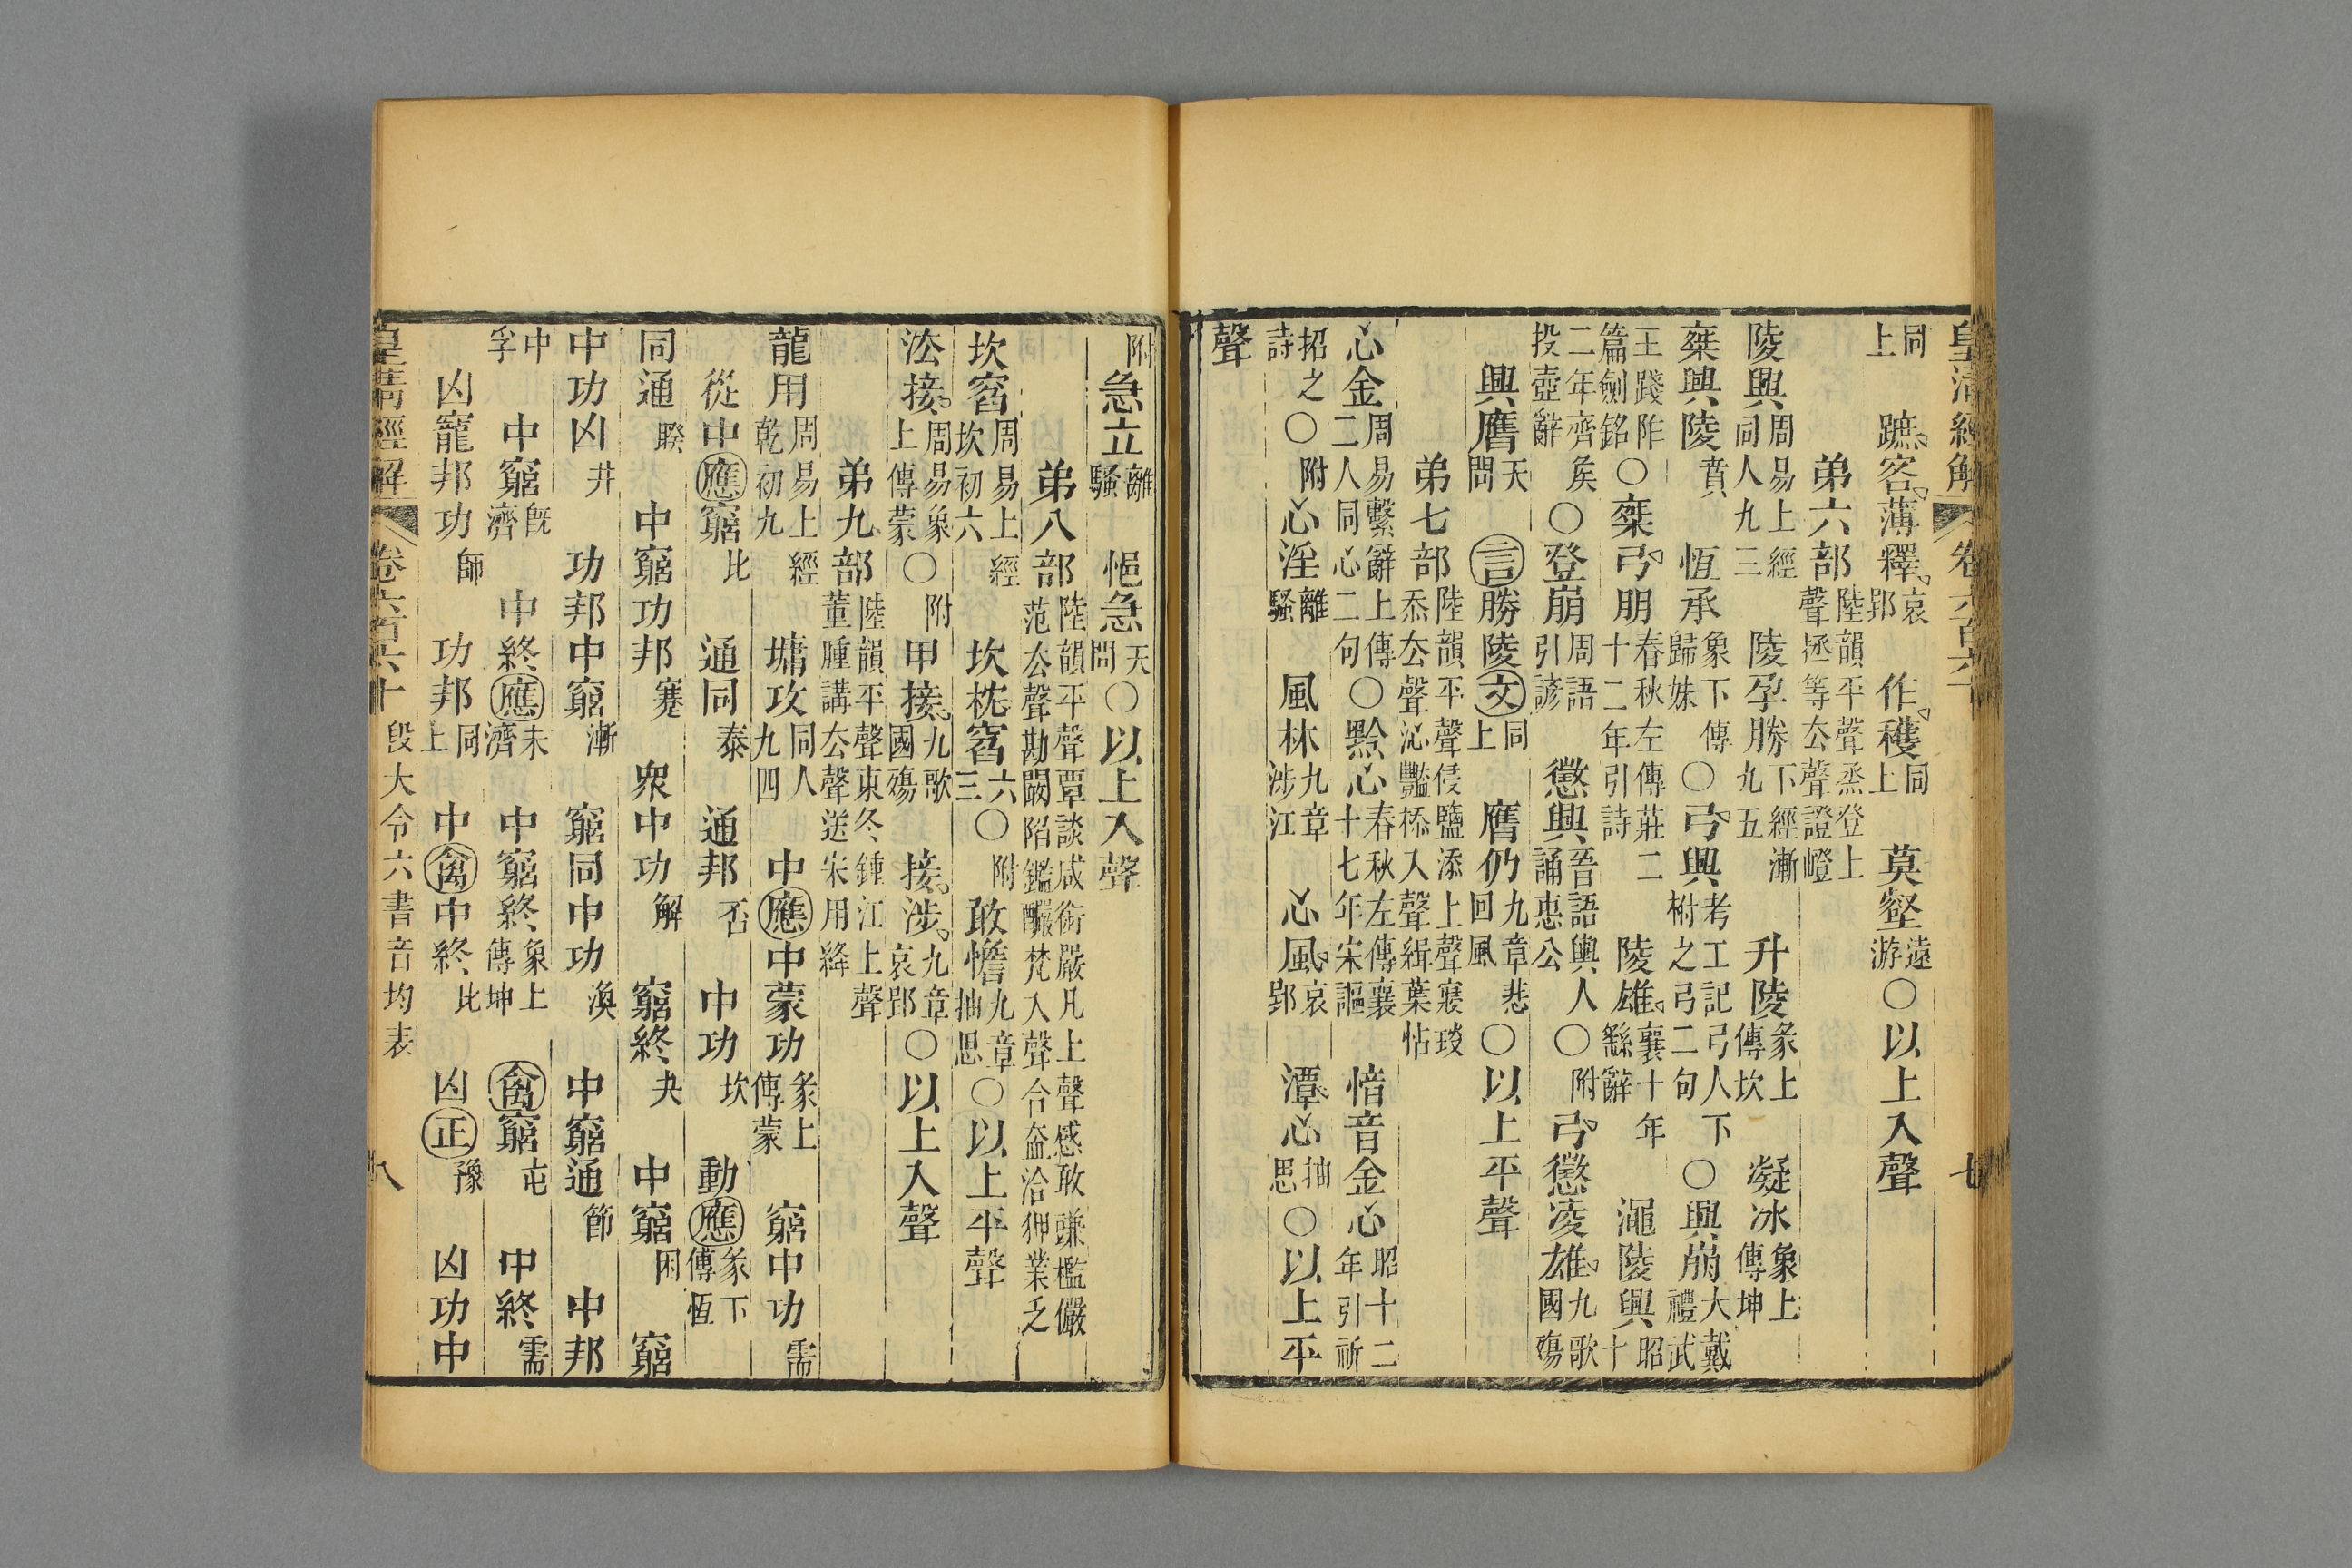 皇清經解 卷六百六十 七
同上 蹠客薄釋哀郢 作穫同上 莫壑遠游○以上入聲
弟六部陸韻平聲烝登上聲拯等厺聲證嶝
陵興周易上經同人九三 陵孕勝下經漸九五 升陵彖上傳坎 凝冰象上傳坤
椉興陵賁 恆承象下傳歸妹○弓興考工記弓人下柎之弓二句○興崩大戴禮武
王踐阼篇劍銘○椉弓朋春秋左傳莊二十二年引詩 陵雄襄十年繇辭 澠陵興昭十
二年齊矦投壺辭○登崩周語引諺 懲興晉語輿人誦惠公○附弓懲淩雄九歌國殤
興膺天問 言勝陵文同上 膺仍九章悲回風○以上平聲
弟七部陸韻平聲侵鹽添上聲寑琰忝厺聲沁豔㮇入聲緝葉怗
心金周易繫辭上傳二人同心二句○黔心春秋左傳襄十七年宋謳 愔音金心昭十二年引祈
招之詩○附心淫離騷 風林九章涉江 心風哀郢 潭心抽思○以上平
聲
附急立離騷 悒急天問○以上入聲
弟八部陸韻平聲覃談咸銜嚴凡上聲感敢豏檻儼范厺聲勘闞陷鑑釅梵入聲合盍洽狎業乏
坎窞周易上經坎初六 坎枕窞六三○附敢憺九章抽思○以上平聲
㳒接周易象上傳蒙○附甲接九歌國殤 接涉九章哀郢○以上入聲
弟九部陸韻平聲東冬鍾江上聲董腫講厺聲送宋用絳
龍用周易上經乾初九 墉攻同人九四 中應中蒙功彖上傳蒙 窮中功需
從中應窮比 通同泰 通邦否 中功坎 動應彖下傳恆
同通睽 中窮功邦蹇 衆中功解 窮終夬 中窮困 窮
中功凶井 功邦中窮漸 窮同中功渙 中窮通節 中邦
中孚 中窮旣濟 中終應未濟 中窮終象上傳坤 禽窮屯 中終需
凶寵邦功師 功邦同上 中禽中終比 凶正豫 凶功中
皇清經解 卷六百六十 段大令六書音均表 八